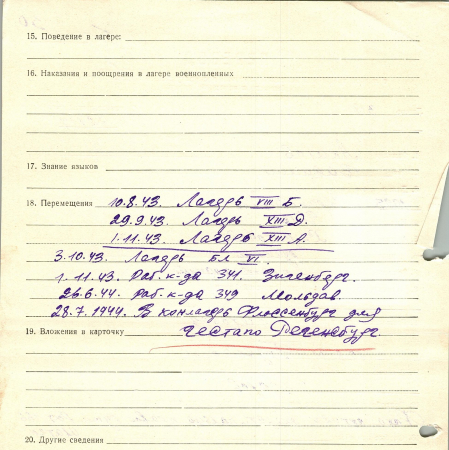 15. Поведение в лагере:
16. Наказания и поощрения в лагере военнопленных
17. Знание языков
18. Перемещения 10.8.43. Лагерь VIII Б.
29.9.43. Лагерь XIII Д.
1.11.43. Лагерь XIII А.
3.10.43. Лагерь БЛ VI.
1.11.43. Раб. к-да 341.
26.6.44. раб. к-да 349 Мольдав.
28.7.1944. В концлагерь Флоссенбург для
19. Вложения в карточку гестапо Регенсбург.
20. Другие сведения